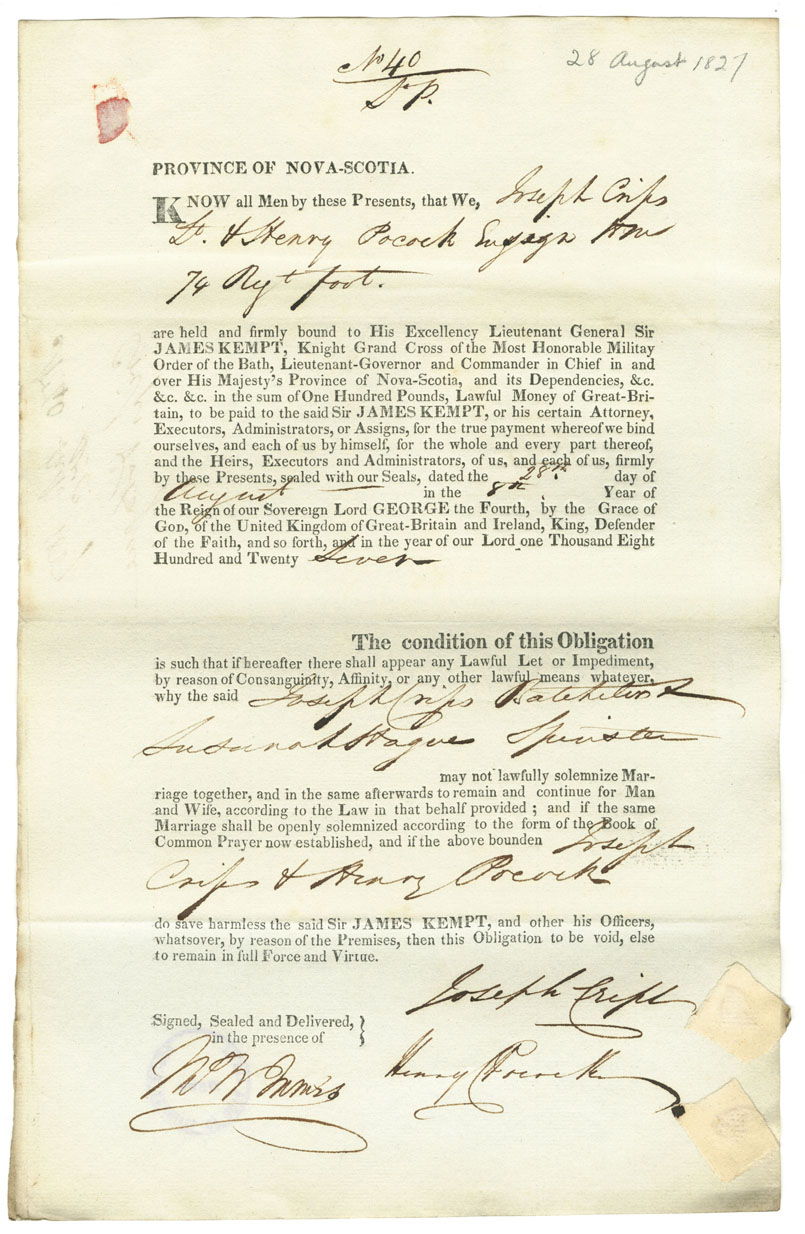 No 40
28 August 1827
PROVINCE OF NOVA-SCOTIA.
KNOW all Men by these Presents, that We, Joseph Crips
Lt. & Henry Pocock Ensign HM
74 Regt foot.
are held and firmly bound to His Excellency Lieutenant General Sir
JAMES KEMPT, Knight Grand Cross of the Most Honorable Militay
Order of the Bath, Lieutenant-Governor and Commander in Chief in and
over His Majesty's Province of Nova-Scotia, and its Dependencies, &c.
&c. &c. in the sum of One Hundred Pounds, Lawful Money of Great-Bri-
tain, to be paid to the said Sir JAMES KEMPT, or his certain Attorney,
Executors, Administrators, or Assigns, for the true payment whereof we bind
ourselves, and each of us by himself, for the whole and every part thereof,
and the Heirs, Executors and Administrators, of us, and each of us, firmly
by these Presents, sealed with our Seals, dated the 28th. day of
August in the 8th Year of
the Reign of our Sovereign Lord GEORGE the Fourth, by the Grace of
GOD, of the United Kingdom of Great-Britain and Ireland, King, Defender
of the Faith, and so forth, and in the year of our Lord one Thousand Eight
Hundred and Twenty Seven
The condition of this Obligation
is such that if hereafter there shall appear any Lawful Let or Impediment,
by reason of Consanguinity, Affinity, or any other lawful means whatever,
why the said Joseph Crips Batchelor &
Susanah Hague Spinster
may not lawfully solemnize Mar-
riage together, and in the same afterwards to remain and continue for Man
and Wife, according to the Law in that behalf provided ; and if the same
Marriage shall be openly solemnized according to the form of the Book of
Common Prayer now established, and if the above bounden Joseph
Crips & Henry Pocock
do save harmless the said Sir JAMES KEMPT, and other his Officers,
whatsover, by reason of the Premises, then this Obligation to be void, else
to remain in full Force and Virtue.
Joseph Crips
Signed, Sealed and Delivered, }
in the presence of
Henry Pocock